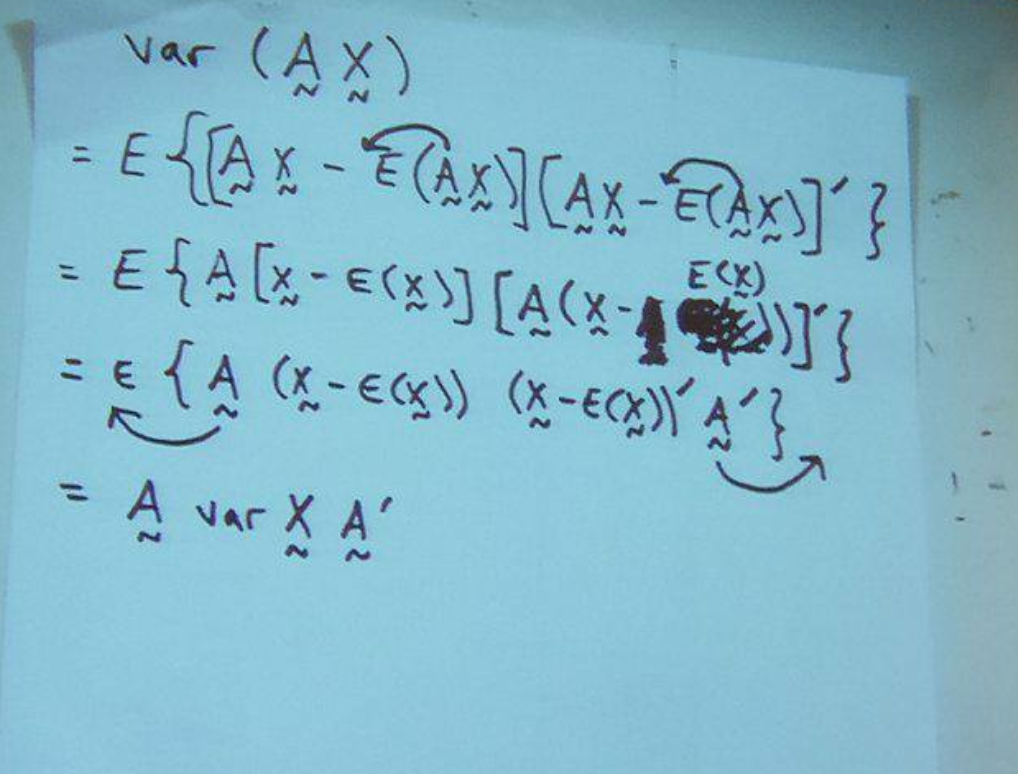 var (A̰ X̰)
= E {[A̰ X̰ - E(A̰X̰)][A̰X̰ - E(A̰X̰)]′}
= E {A̰ [x̰ - E(x̰)] [A̰(x̰ - E(x̰))]′}
= E {A̰ (x̰ - E(x̰)) (x̰ - E(x̰))′ A̰′}
= A̰ var X̰ A̰′